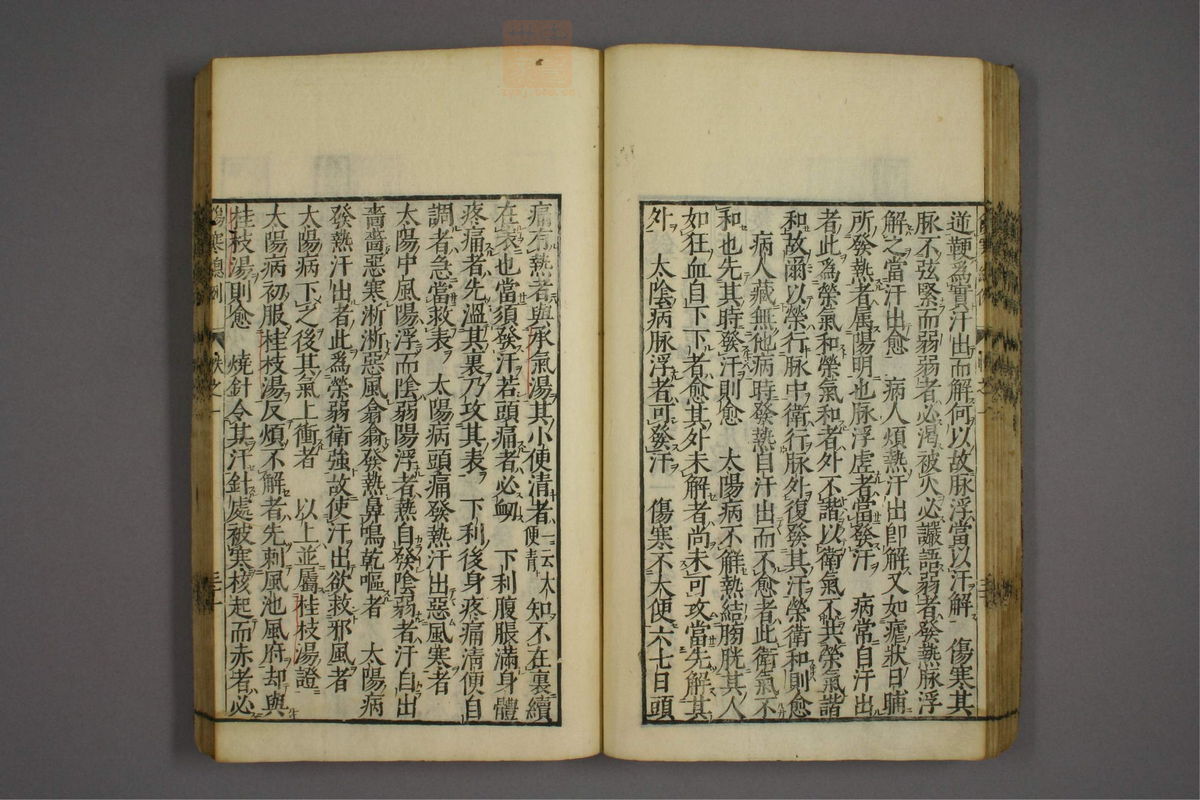 道鞕為實汗出而解何以故脉浮當以汗解　傷寒其
脉不弦緊而弱弱者必渇被火必讝語弱者發熱脉浮
解之當汗出愈　病人煩熱汗出即解又如瘧狀日晡
所發熱者属陽明也脉浮虚者當發汗　病常自汗出
者此為榮氣和榮氣和者外不諧以衛氣不共榮氣諧
和故爾以榮行脉中衛行脉外復發其汗榮衛和則愈
　病人藏無他病時發熱自汗出而不愈者此衛氣不
和也先其時發汗則愈　太陽病不解熱結膀胱其人
如狂血自下下者愈其外未解者尚未可攻當先解其
外　太陰病脉浮者可發汗　傷寒不大便六七日頭
痛有熱者與承氣湯其小便清者一云大便青知不在裏續
在表也當須發汗若頭痛者必衂　下利腹脹滿身體
疼痛者先溫其裏乃攻其表　下利後身疼痛清便自
調者急當救表　太陽病頭痛發熱汗出惡風寒者
太陽中風陽浮而陰弱陽浮者熱自發陰弱者汗自出
嗇嗇惡寒淅淅惡風翕翕發熱鼻鳴乾嘔者　太陽病
發熱汗出者此為榮弱衛強故使汗出欲救邪風者
太陽病下之後其氣上衝者　以上並屬桂枝湯證
太陽病初服桂枝湯反煩不解者先刺風池風府却與
桂枝湯則愈　燒針令其汗針處被寒核起而赤者必
傷寒總例　帙之一　三十